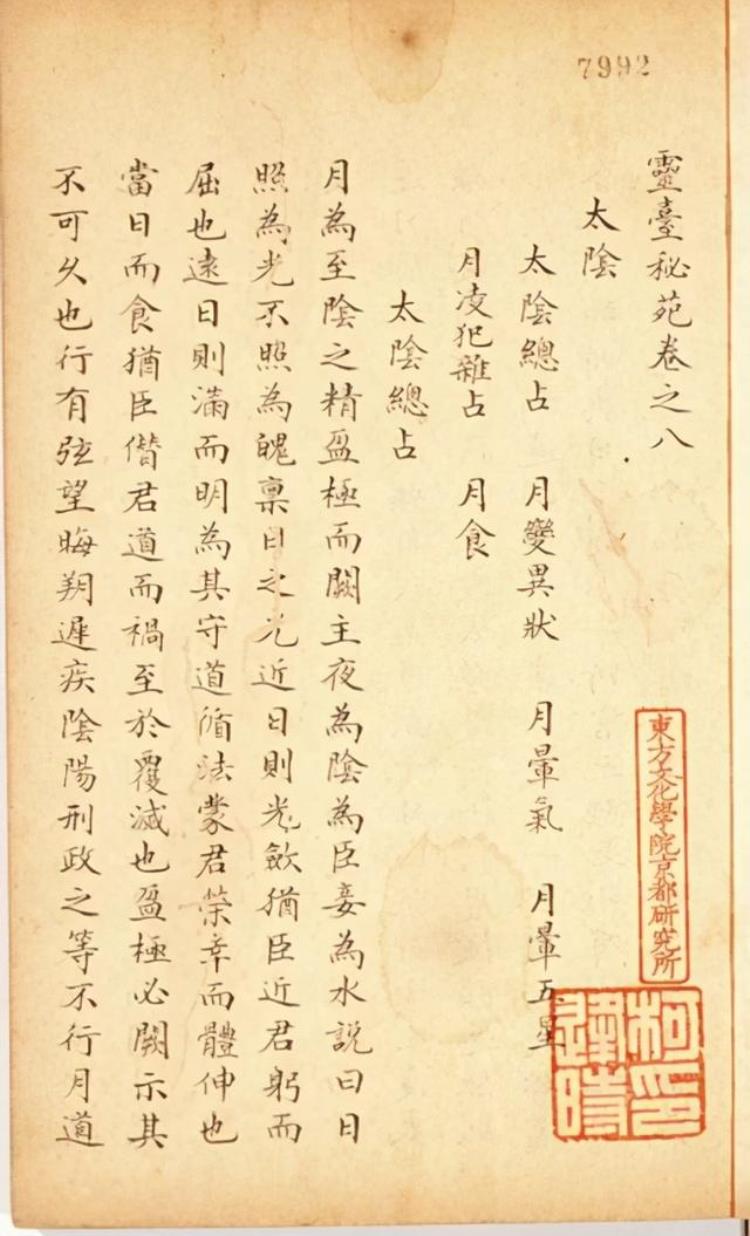 7992
靈臺秘苑卷之八
太陰
太陰總占 月變異狀 月暈氣 月暈五星
月凌犯雜占 月食
太陰總占
月為至陰之精盈極而闕主夜為陰為臣妾為水說曰日
照為光不照為魄禀日之光近日則光斂猶臣近君躬而
屈也遠日則滿而明為其守道循法蒙君榮幸而體伸也
當日而食猶臣僭君道而禍至於覆滅也盈極必闕示其
不可久也行有弦望晦朔遲疾陰陽刑政之等不行月道
東方文化學院京都研究所
柯逢時印